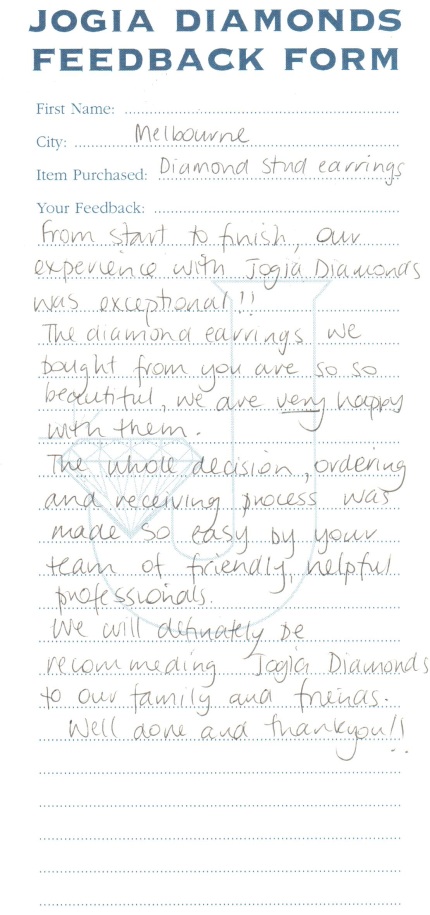 JOGIA DIAMONDS
FEEDBACK FORM
First Name:
City: Melbourne
Item Purchased: Diamond stud earrings
Your Feedback:
From start to finish, our
experience with Jogia Diamonds
was exceptional!!
The diamond earrings we
bought from you are so so
beautiful, we are very happy
with them.
The whole decision, ordering
and receiving process was
made so easy by your
team of friendly, helpful
professionals.
We will definately be
recommeding Jogia Diamonds
to our family and friends.
Well done and thankyou!!